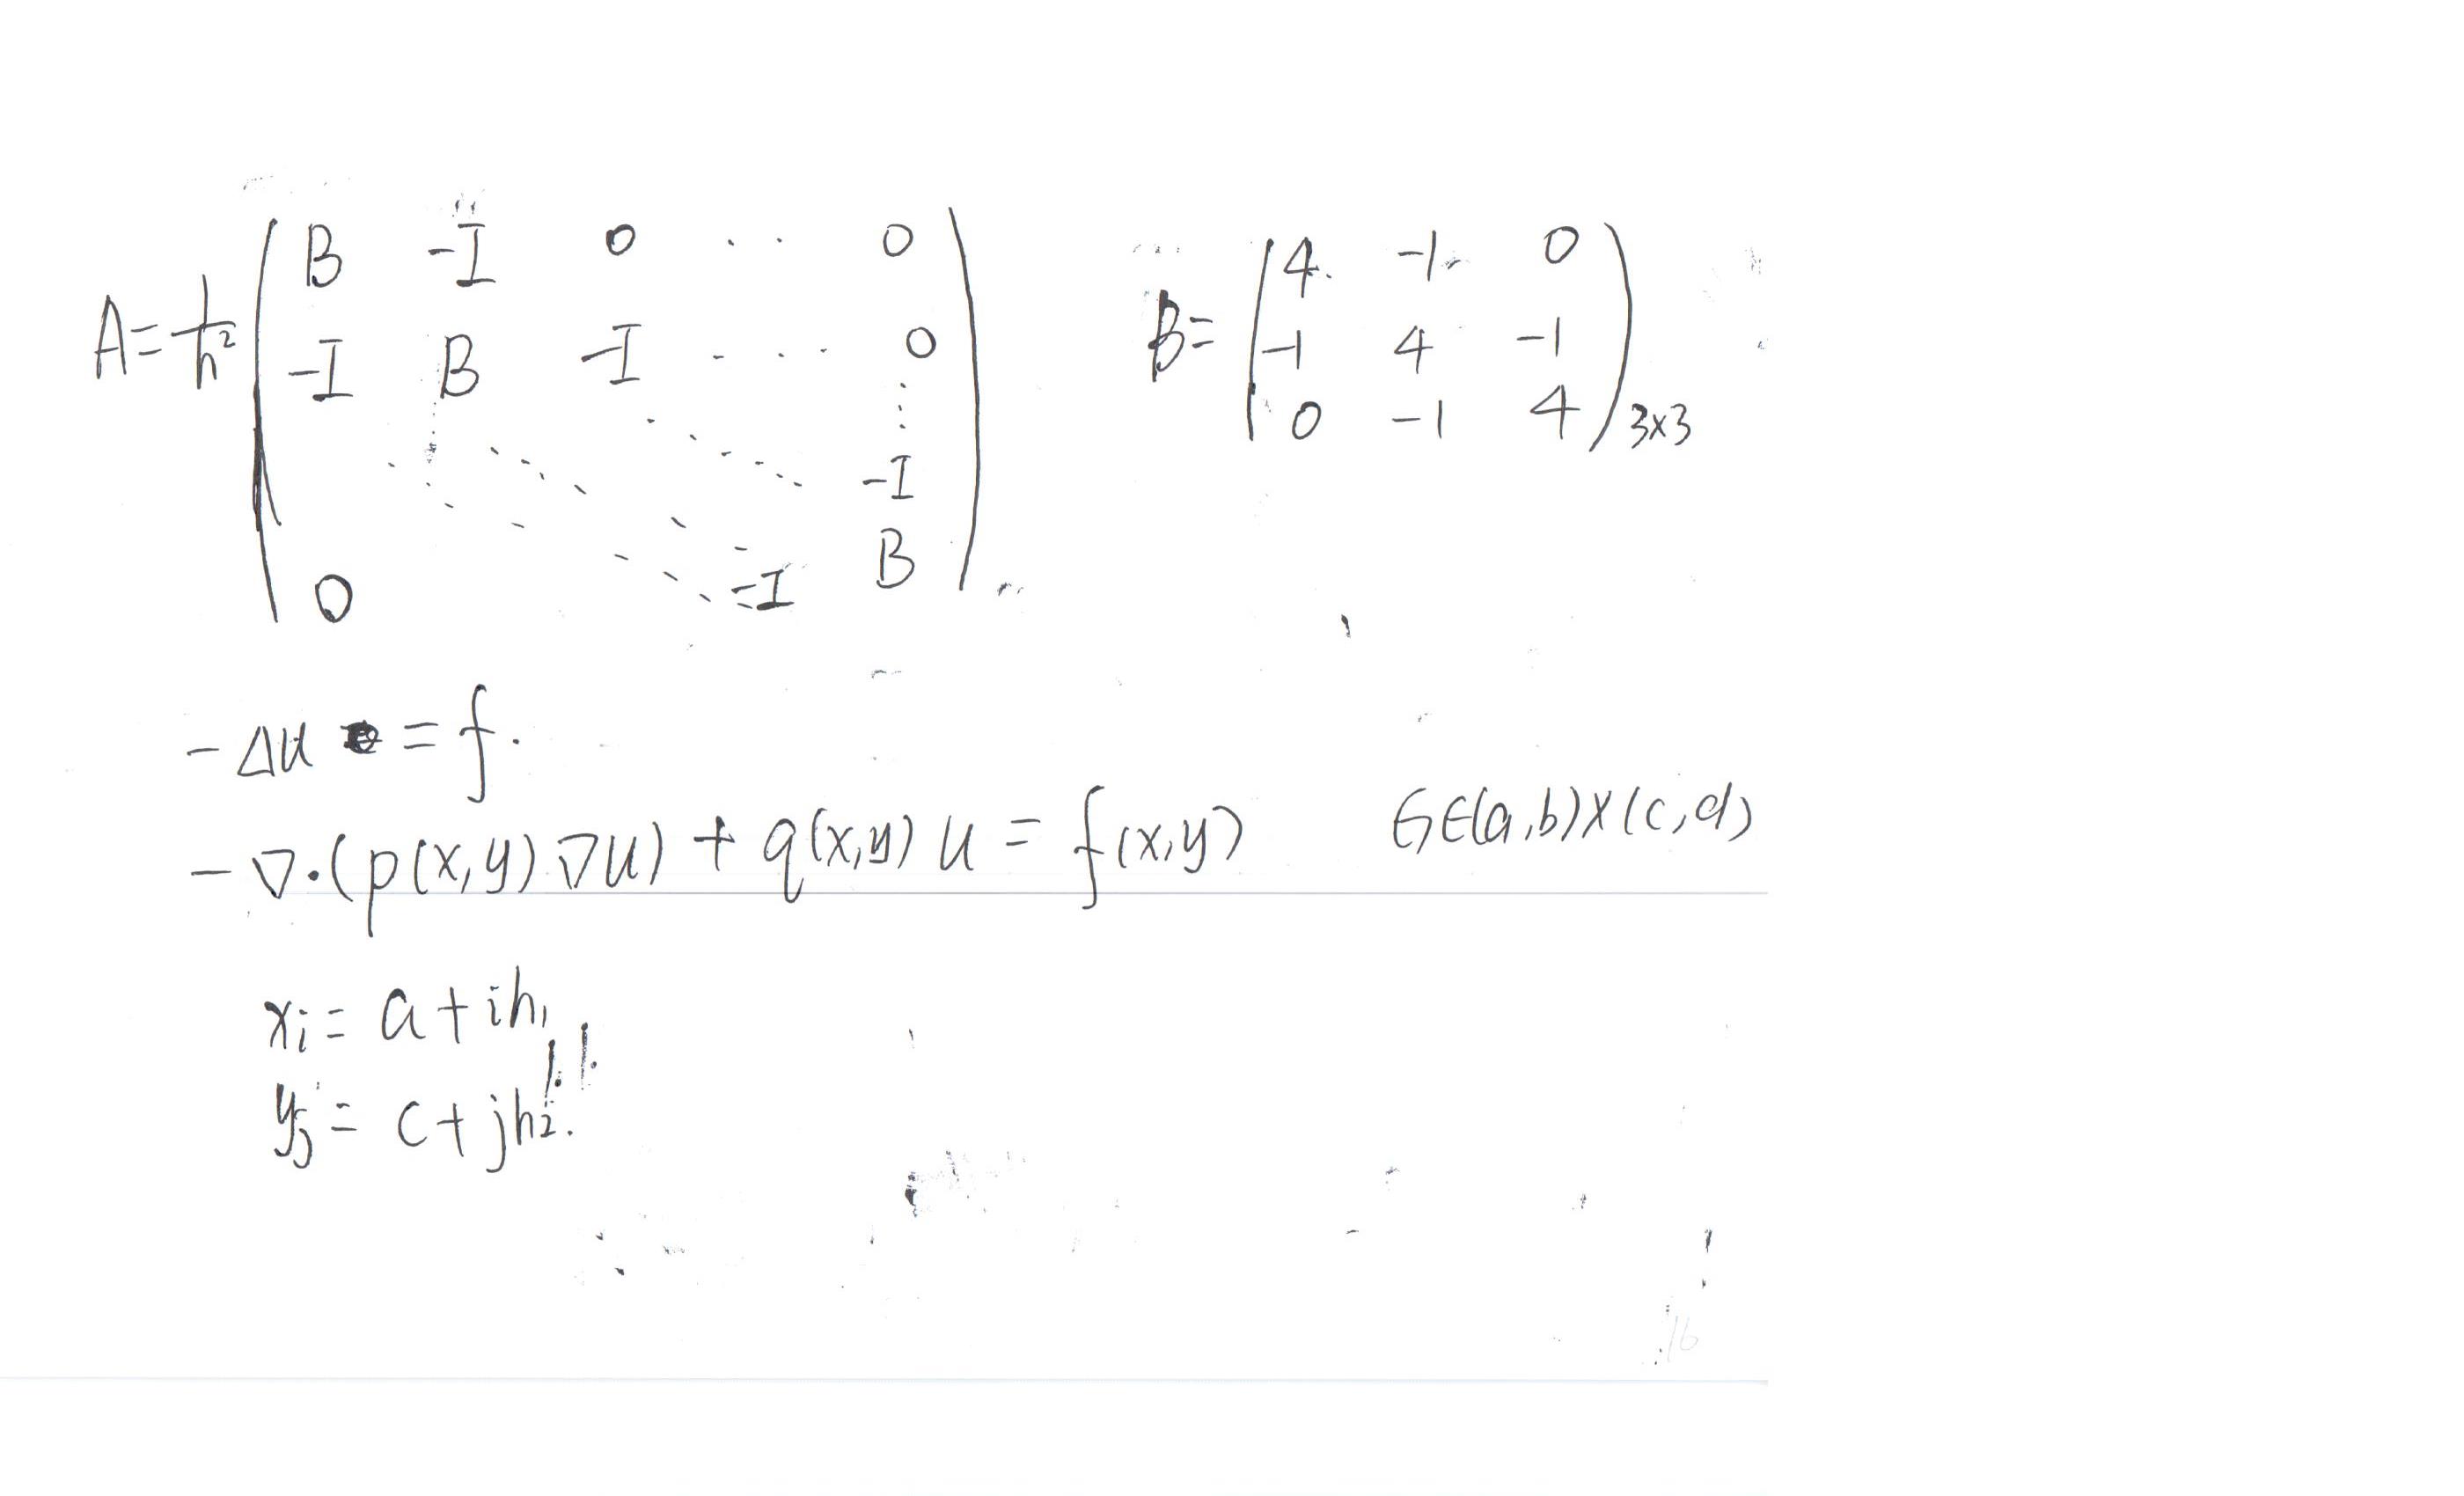 A = 1/h² ( B -I 0 ‥ 0
-I B -I - ‥ · 0
⋮
-I
B
0 -I )
B = ( 4 -1 0
-1 4 -1
0 -1 4 )3×3
-Δu = f.
-∇·(p(x,y)∇u) + q(x,y)u = f(x,y) G∈(a,b)×(c,d)
xi = a + ih1
yj = c + jh2.